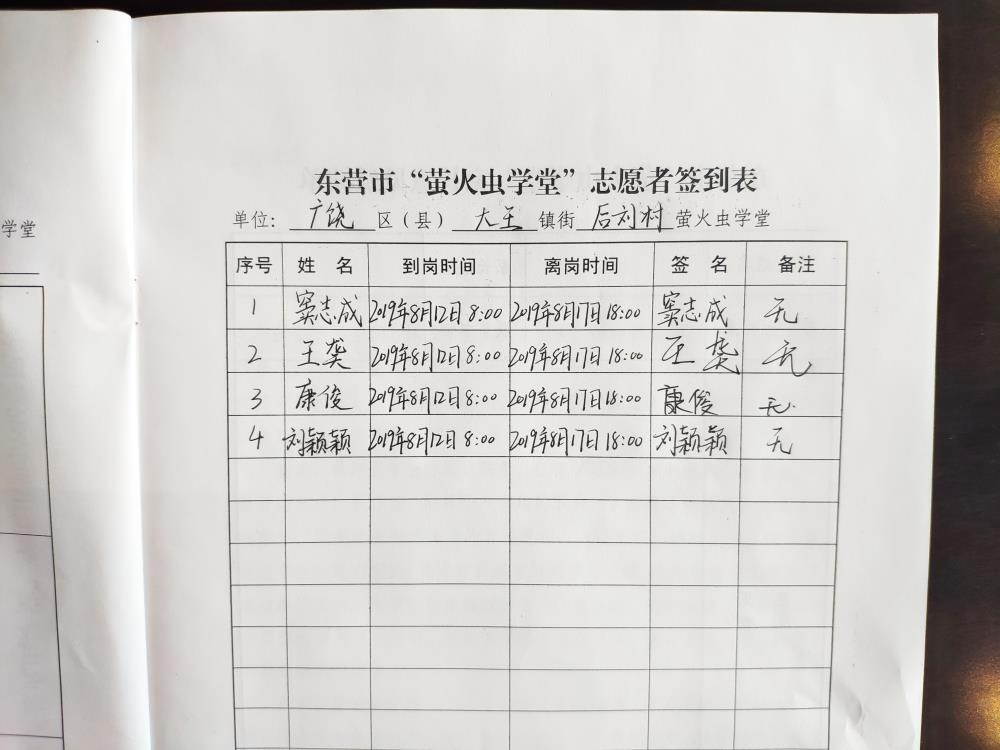 学堂
东营市“萤火虫学堂”志愿者签到表
单位: 广饶 区（县） 大王 镇街 后刘村 萤火虫学堂
序号 姓 名 到岗时间 离岗时间 签 名 备注
1 窦志成 2019年8月12日 8:00 2019年8月17日 18:00 窦志成 无
2 王龚 2019年8月12日 8:00 2019年8月17日 18:00 王龚 无
3 康俊 2019年8月12日 8:00 2019年8月17日 18:00 康俊 无.
4 刘颖颖 2019年8月12日 8:00 2019年8月17日 18:00 刘颖颖 无